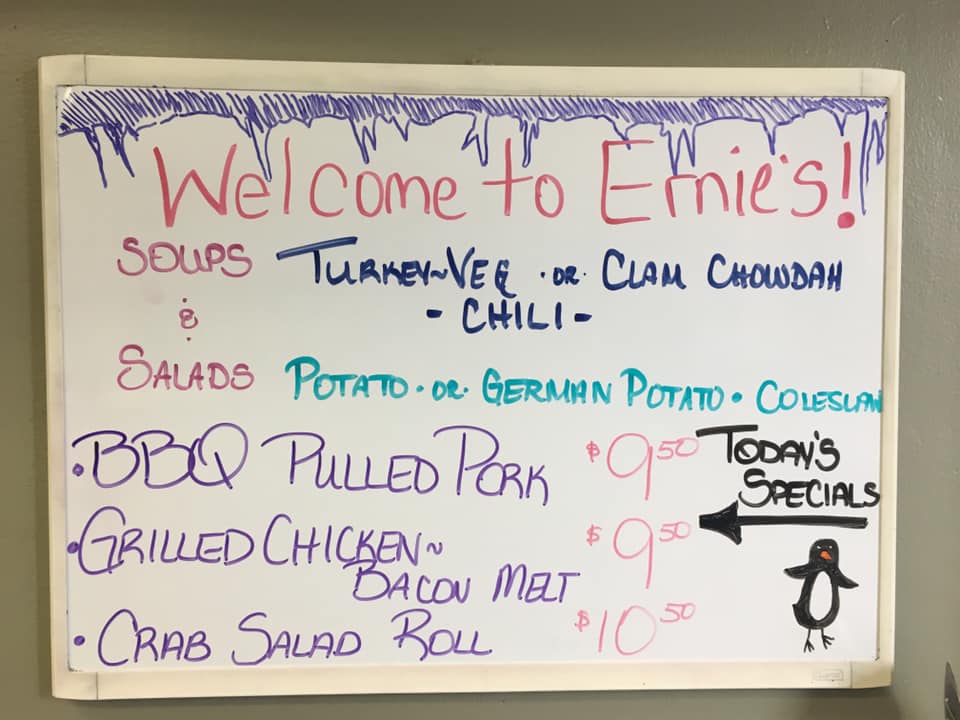 Welcome to Ernie's!
SOUPS
&
SALADS
TURKEY~VEG ·OR· CLAM CHOWDAH
- CHILI -
POTATO · OR · GERMAN POTATO · COLESLAW
· BBQ PULLED PORK $9.50
· GRILLED CHICKEN~
BACON MELT $9.50
· CRAB SALAD ROLL $10.50
TODAY'S
SPECIALS